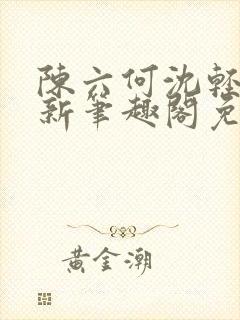 陳六何沈輕
新筆趣閣免
黃金潮